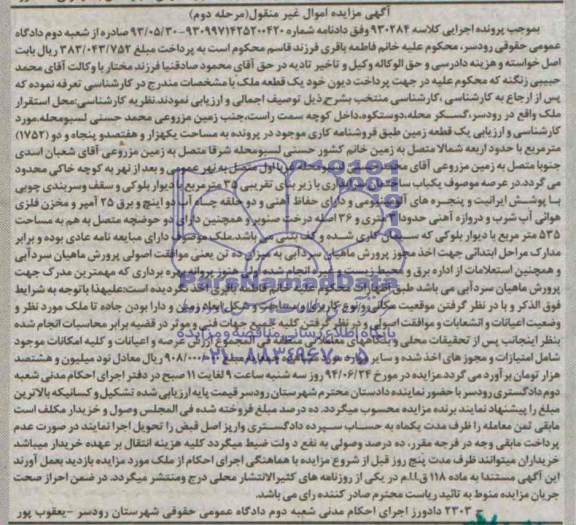 آگهی مزایده اموال غیر منقول(مرحله دوم)
بموجب پرونده اجرایی کلاسه ۹۳۰۲۸۴ وفق دادنامه شماره ۹۳۰۹۹۷۱۴۲۵۲۰۰۴۲۰-۹۳/۰۵/۳۰ صادره از شعبه دوم دادگاه
عمومی حقوقی رودسر، محکوم علیه خانم فاطمه باقری فرزند قاسم محکوم است به پرداخت مبلغ ۳۸۳/۰۴۳/۷۵۲ ریال بابت
اصل خواسته و هزینه دادرسی و حق الوکاله وکیل و تاخیر تادیه در حق آقای محمود صادقنیا فرزند مختار با وکالت آقای محمد
حبیبی زنگنه که محکوم علیه در جهت پرداخت دیون خود یک قطعه ملک با مشخصات مندرج در کارشناسی تعرفه نموده که
پس از ارجاع به کارشناسی ،کارشناسی منتخب بشرح ذیل توصیف اجمالی و ارزیابی نمودند.نظریه کارشناسی:محل استقرار
ملک واقع در رودسر،کسکر محله،دوستکوه،داخل کوچه سمت راست،جنب زمین مزروعی محمد حسنی لسبومحله.مورد
کارشناسی و ارزیابی یک قطعه زمین طبق فروشنامه کاری موجود در پرونده به مساحت یکهزار و هفتصدو پنجاه و دو (۱۷۵۲)
مترمربع با حدود اربعه شمالا متصل به زمین خانم کشور حسنی لسبومحله شرقا متصل به زمین مزروعی آقای شعبان اسدی
جنوبا متصل به زمین مزروعی آقای محمد حسنی لسبومحله غربا اول متصل به نهر عمومی و بعد از نهر به کوچه خاکی محدود
می گردد.در عرصه موصوف یکباب ساختمان با زیر بنای تقریبی ۳۵ مترمربع با دیوار بلوکی و سقف وسربندی چوبی
با پوشش ایرانیت و پنجره های آلومینیومی و دارای حفاظ آهنی و دو حلقه چاه آب دو اینچ و برق ۲۵ آمپر و مخزن فلزی
هوائی آب شرب و دروازه آهنی حدودا ۳ متری و ۳۶ اصله درخت صنوبر و همچنین دارای دو حوضچه متصل به هم به مساحت
۵۳۵ متر مربع با دیوار بلوکی که سیمان کاری شده و کف بتنی می باشد.ملک موصوف دارای مبایعه نامه عادی بوده و برابر
مدارک مراحل ابتدائی جهت اخذ مجوز پرورش ماهیان سردآبی به میزان ده تن یعنی موافقت اصولی پرورش ماهیان سردآبی
و همچنین استعلامات از اداره برق و محیط زیست و غیره انجام شده ولی هنوز پروانه بهره برداری که مهمترین مدرک جهت
پرورش ماهیان سردآبی می باشد طبق خانم فاطمه باقری اخذ نگردیده است؛علیهذا باتوجه به شرایط
فوق الذکر و با در نظر گرفتن موقعیت مکانی و نوع کاربری و مساحت و شکل ابعاد زمین و دارا بودن جاده تا ملک مورد نظر و
وضعیت اعیانات و انشعابات و موافقت اصولی و با در نظر گرفتن کلیه جوانب و جهات فنی و موثر در قضیه برابر محاسبات انجام شده
بنظر اینجانب پس از تحقیقات محلی و بنگاههای معاملاتی منطقه فی المجموع ارزش عرصه و اعیانات و کلیه امکانات موجود
شامل امتیازات و مجوز های اخذ شده و سایر ۹۰۸/۰۰۰/۰۰۰ ریال معادل نود میلیون و هشتصد
هزار تومان برآورد می گردد.مزایده در مورخ ۹۴/۰۶/۲۴ روز سه شنبه ساعت ۹ لغایت ۱۱ صبح در دفتر اجرای احکام مدنی شعبه
دوم دادگستری رودسر با حضور نماینده دادستان محترم شهرستان رودسر قیمت پایه ارزیابی شده تشکیل و کسانیکه بالاترین
مبلغ را پیشنهاد نمایند برنده مزایده محسوب میگردد. ده درصد مبلغ فروخته شده فی المجلس وصول و خریدار مکلف است
مابقی ثمن معامله را ظرف مدت یکماه به حساب سپرده دادگستری واریز اصل فیش را تحویل اجرا نمایند در صورت عدم
پرداخت مابقی وجه در فرجه مقرر، ده درصد وصولی به نفع دولت ضبط میگردد کلیه هزینه انتقال بر عهده خریدار میباشد
خریداران میتوانند ظرف مدت پنج روز قبل از شروع مزایده با هماهنگی اجرای احکام از ملک مورد مزایده بازدید بعمل آورند
این آگهی مستندا به ماده ۱۱۸ ق.ا.ا.م در یکی از روزنامه های کثیرالانتشار محلی درج ومنتشر میگردد. در ضمن احراز صحت
جریان مزایده منوط به تائید ریاست محترم صادر کننده رای می باشد.
۲۳۰۳ دادورز اجرای احکام مدنی شعبه دوم دادگاه عمومی حقوقی شهرستان رودسر –یعقوب پور
ParsNamadData
پایگاه اطلاع رسانی مناقصه و مزایده
۰۲۱-۸۸۳۴۹۶۷۰-۵